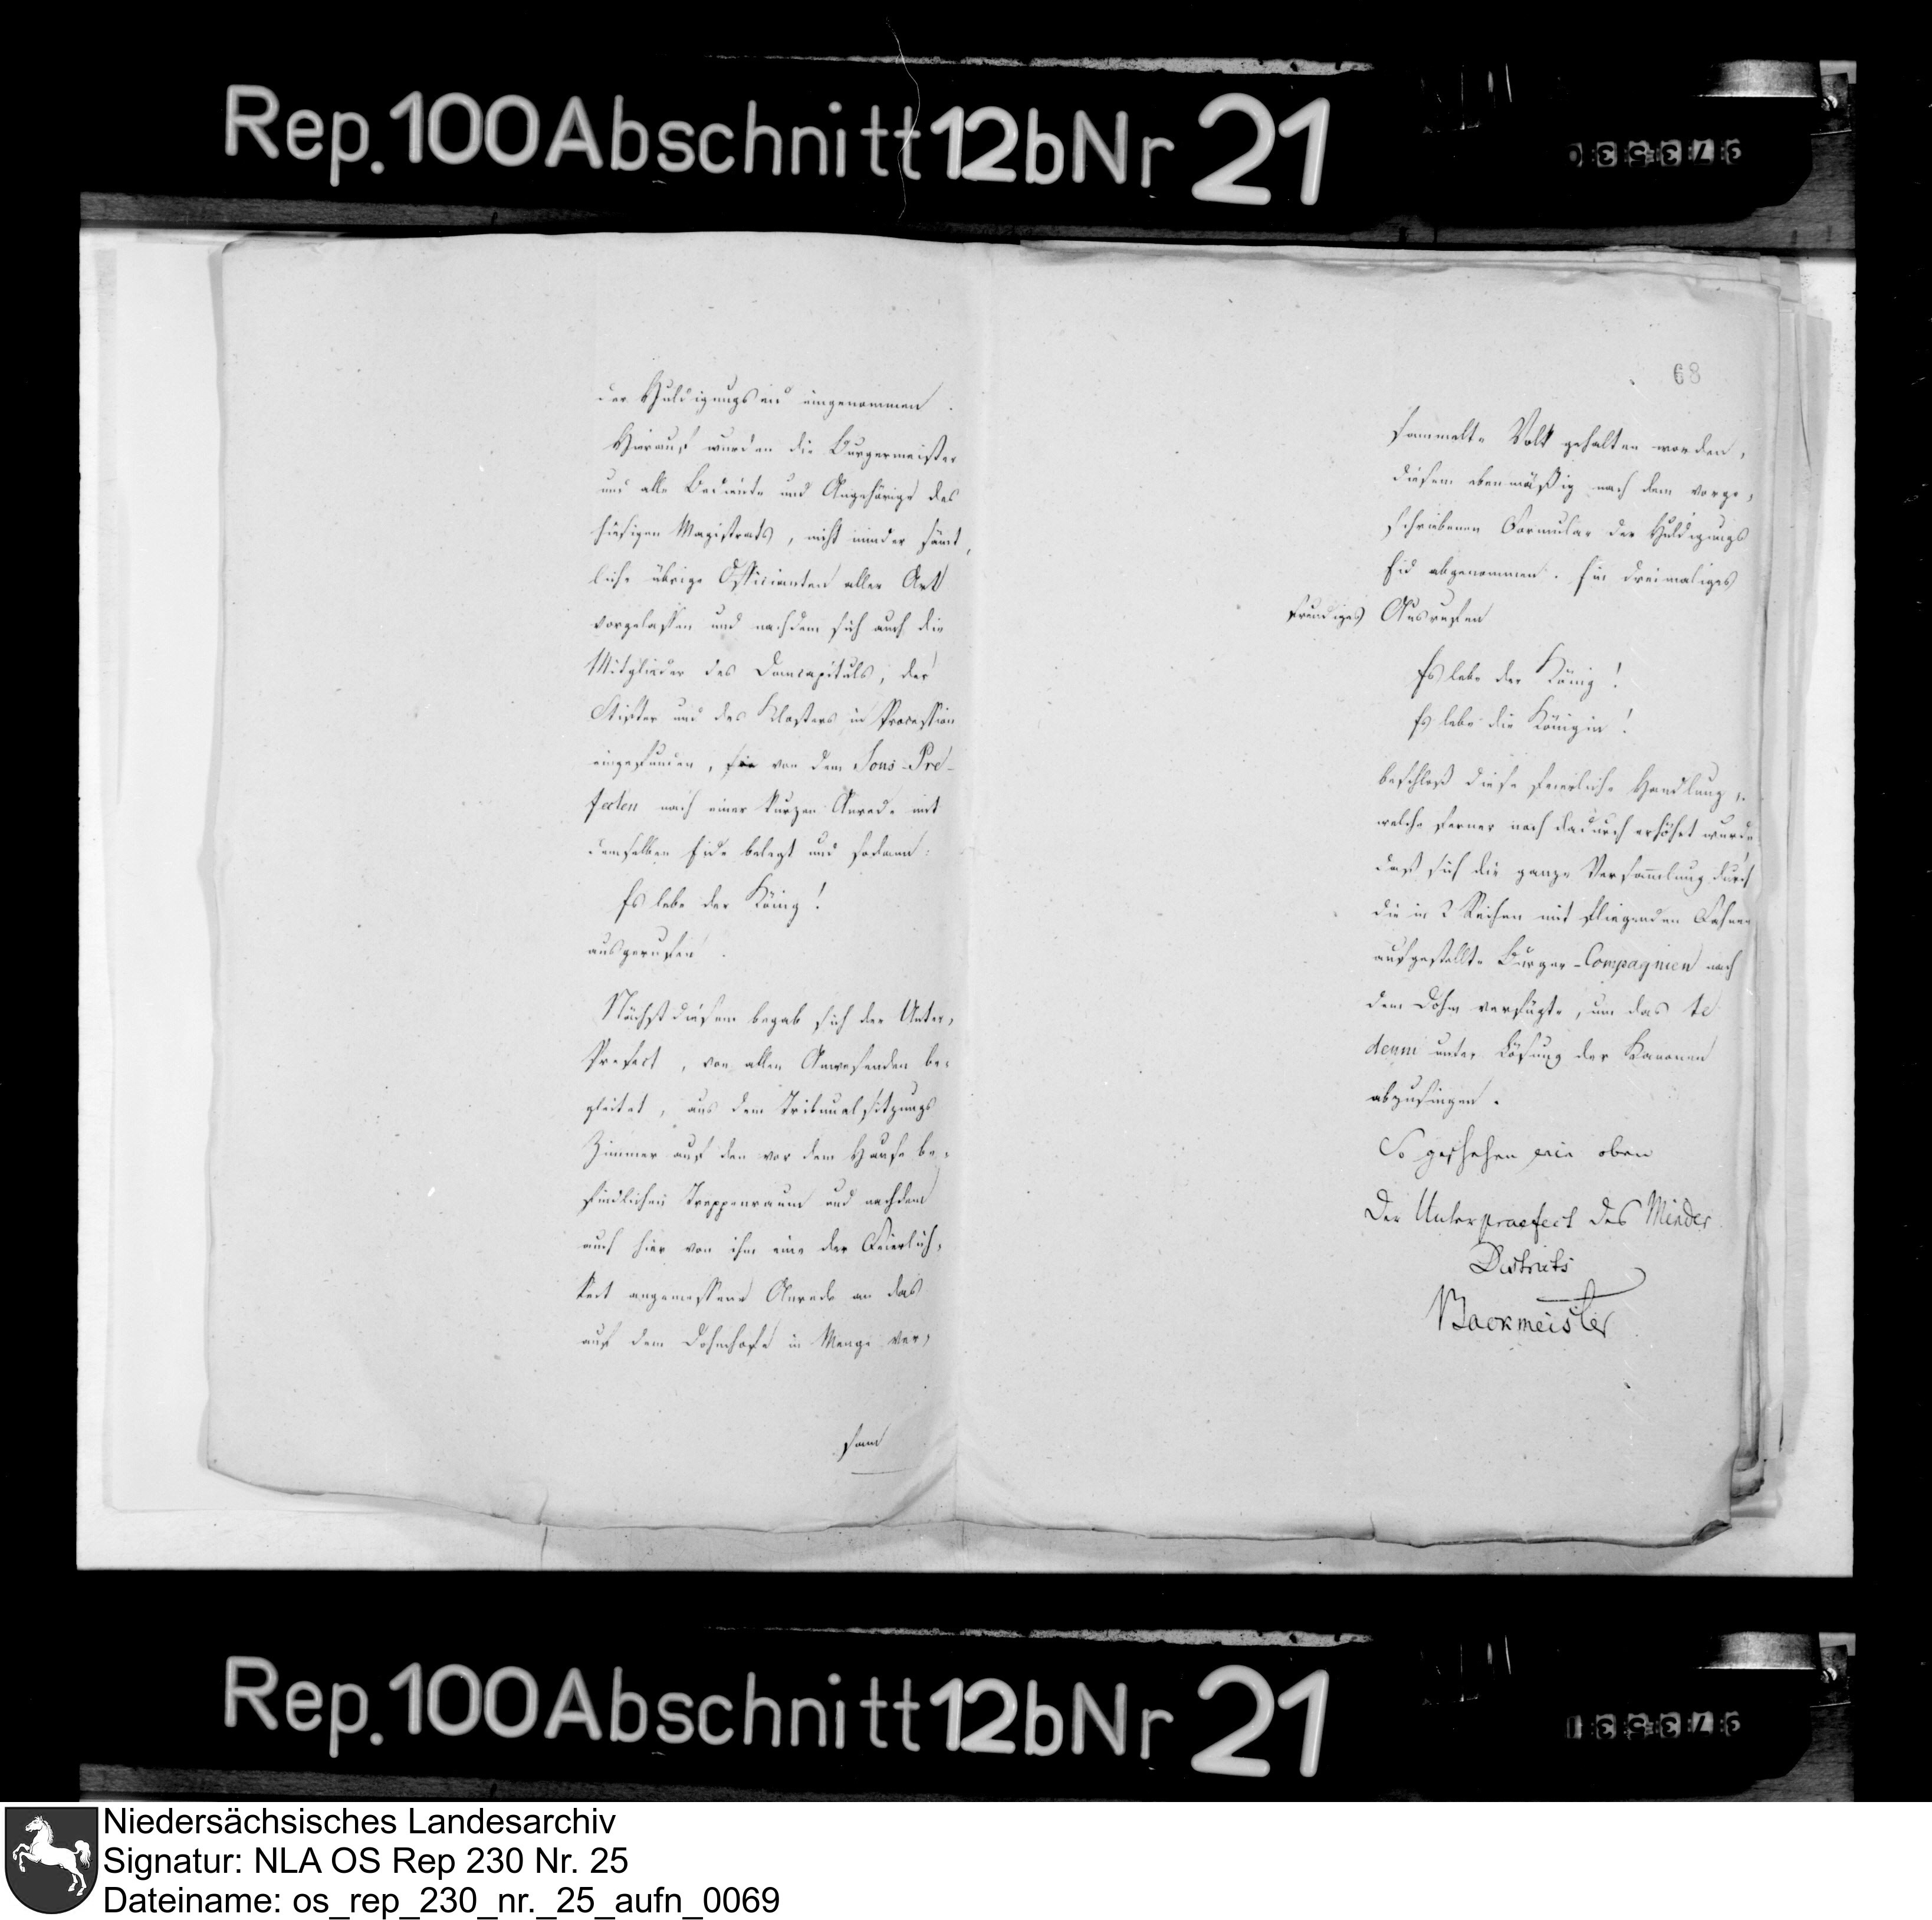 Rep. 100 Abschnitt 12b Nr 21
der Huldigungseid eingenommen.
Hierauf wurden die Burgermeister
und alle Bediente und Angehörige des
hiesigen Magistrats, nicht minder sämt,
liche übrige Officianten aller Art
vorgelaßen und nachdem sich auch die
Mitglieder des Domcapituls, der
Stifter und des Klosters in Procession
eingefunden, sie von dem Sous-Pre-
fecten nach einer kurzen Anrede mit
demselben Eide belegt und sodann:
Es lebe der König!
ausgerufen.
Nächst diesem begab sich der Unter,
Prefect, von allen Anwesenden be,
gleitet, aus dem Tribunalsitzungs
Zimmer auf den vor dem Hause be,
findlichen Treppenraum und nachdem
auch hier von ihm eine der Feierlich,
keit angemessene Anrede an das
auf dem Dohmhofe in Menge ver,
sam
68
sammelte Volk gehalten worden,
diesem ebenmäßig nach dem vorge,
schriebenen Formular der Huldigungs
Eid abgenommen. Ein dreimaliges
freudiges Ausrufen
Es lebe der König!
Es lebe die Königin!
beschloß diese feierliche Handlung,
welche ferner noch dadurch erhöhet wurde
daß sich die ganze Versamlung durch
die in 2 Reihen mit fliegenden Fahnen
aufgestellte Bürger-Compagnien nach
dem Dohm verfügte, um das te
deum unter Lösung der Kanonen
abzusingen.
So geschehen wie oben
Der Unterpraefect des Minder
Districts
Backmeister
Rep. 100 Abschnitt 12b Nr 21
Niedersächsisches Landesarchiv
Signatur: NLA OS Rep 230 Nr. 25
Dateiname: os_rep_230_nr._25_aufn_0069